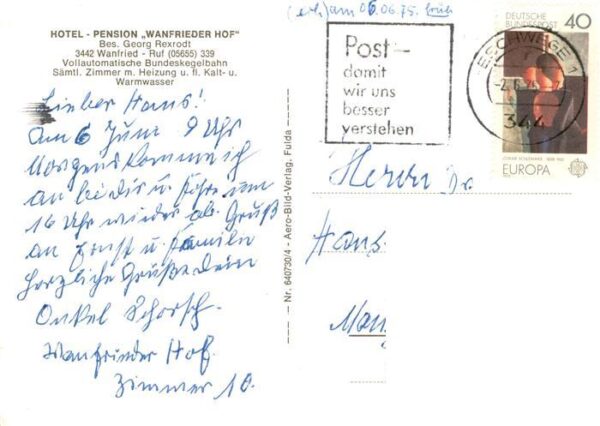 HOTEL - PENSION „WANFRIEDER HOF"
Bes. Georg Rexrodt
3442 Wanfried - Ruf (05655) 339
Vollautomatische Bundeskegelbahn
Sämtl. Zimmer m. Heizung u. fl. Kalt- u.
Warmwasser
Lieber Hans!
Am 6 Juni 9 Uhr
Morgens komme ich
an bei dir u. fahre um
16 Uhr wieder ab. Gruß
an Ernst u. Familie
herzliche Grüße dein
Onkel Schorsch.
Wanfrieder Hof.
Zimmer 10.
Nr. 640730/4 - Aero-Bild-Verlag, Fulda
am 06.06.75. früh
Post-
damit
wir uns
besser
verstehen
ESCHWEGE 1
344
DEUTSCHE
BUNDESPOST
40
EUROPA
Herrn Dr.
Hans